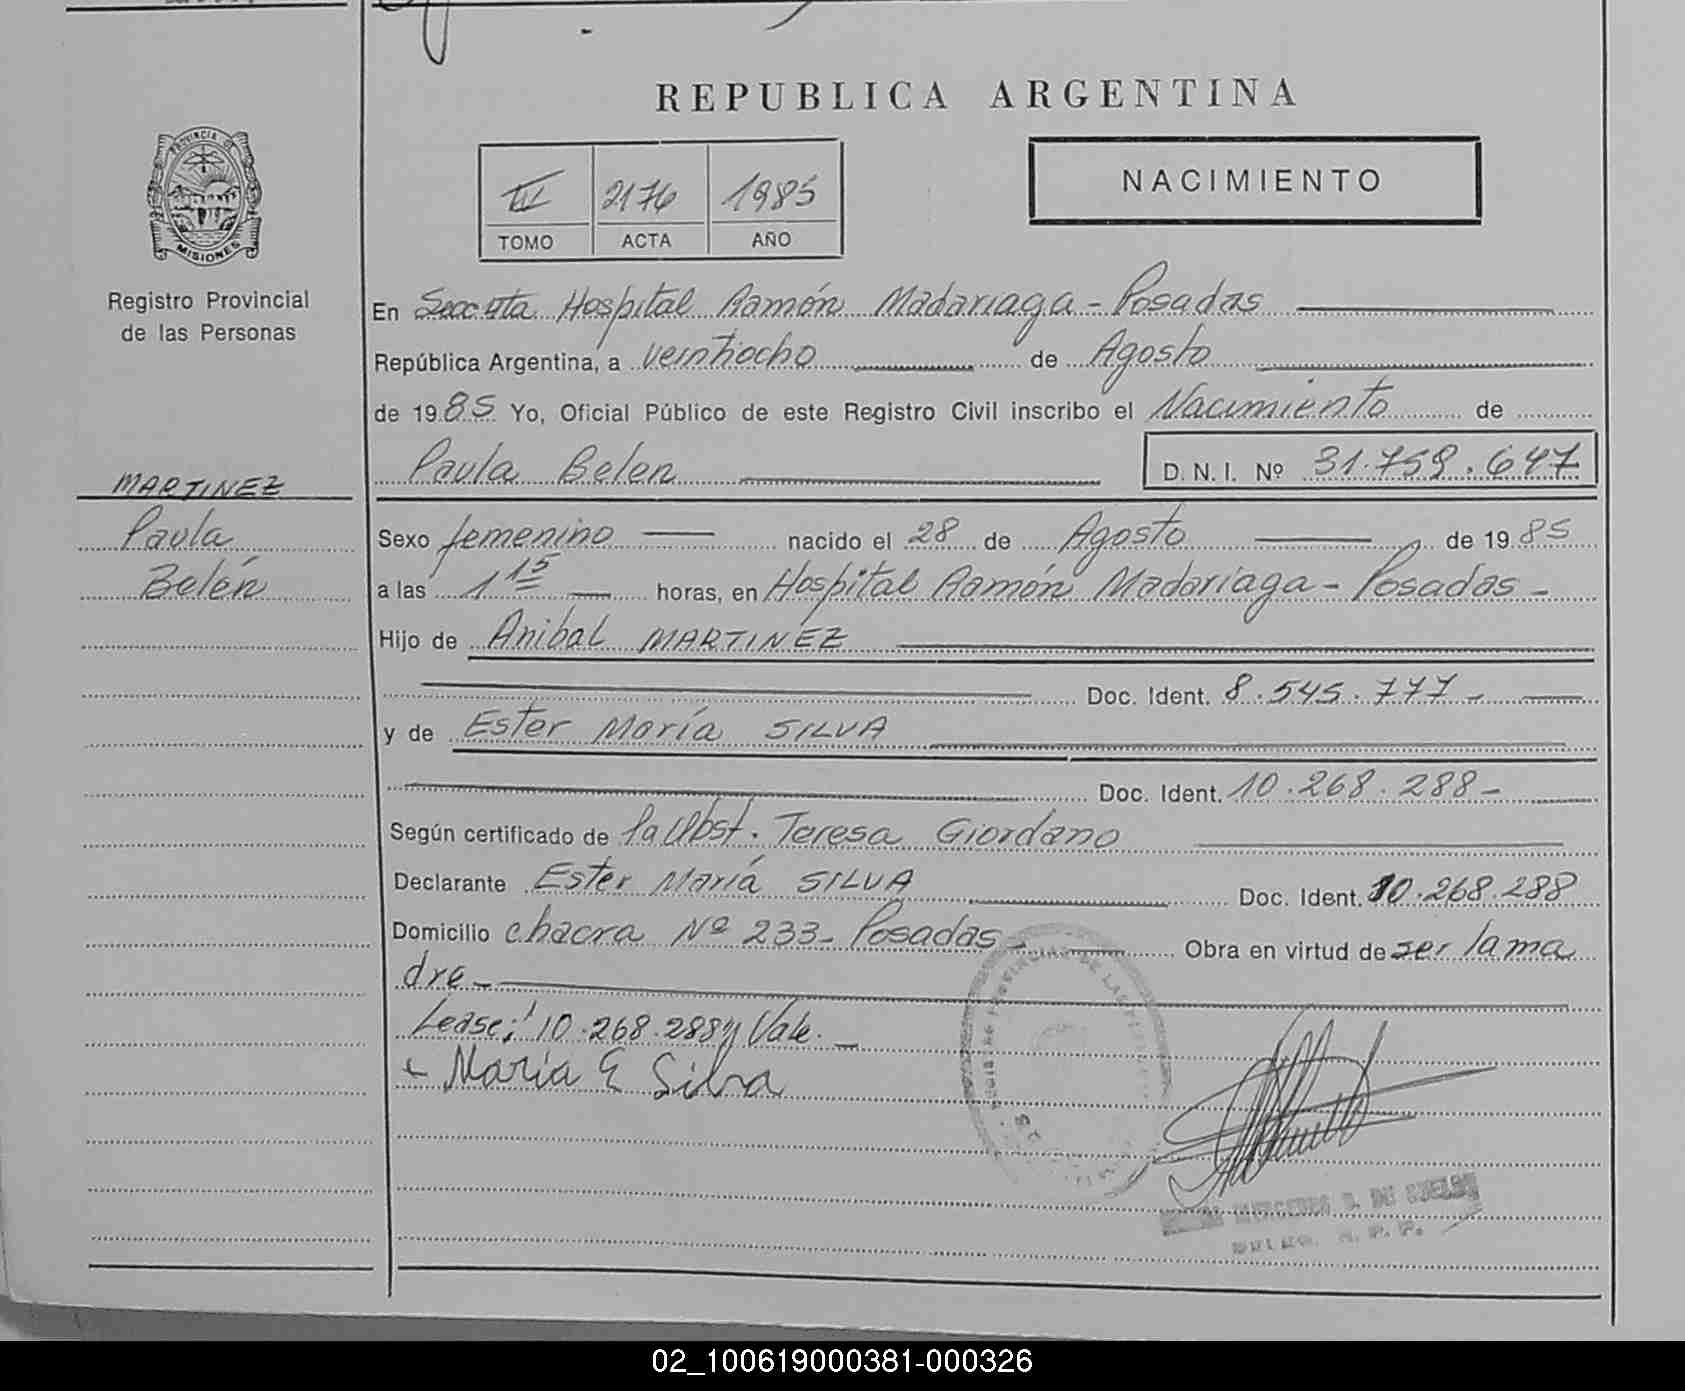 REPUBLICA ARGENTINA
PROVINCIA DE
MISIONES
Registro Provincial
de las Personas
III 2176 1985
TOMO ACTA AÑO
NACIMIENTO
En Secc 4ta Hospital Ramón Madariaga - Posadas
República Argentina, a veintiocho de Agosto
de 1985 Yo, Oficial Público de este Registro Civil inscribo el Nacimiento de
Paula Belen D. N. I. Nº 31.759.647
MARTINEZ
Paula
Belén
Sexo femenino nacido el 28 de Agosto de 1985
a las 1 15 horas, en Hospital Ramón Madariaga - Posadas -
Hijo de Anibal MARTINEZ
Doc. Ident. 8.545.777 -
y de Ester María SILVA
Doc. Ident. 10.268.288 -
Según certificado de la Obst. Teresa Giordano
Declarante Ester María SILVA Doc. Ident. 10.268.288
Domicilio chacra Nº 233 - Posadas - Obra en virtud de ser la ma
dre -
Lease: "10.268.288" Vale. -
Maria E Silva
02_100619000381-000326